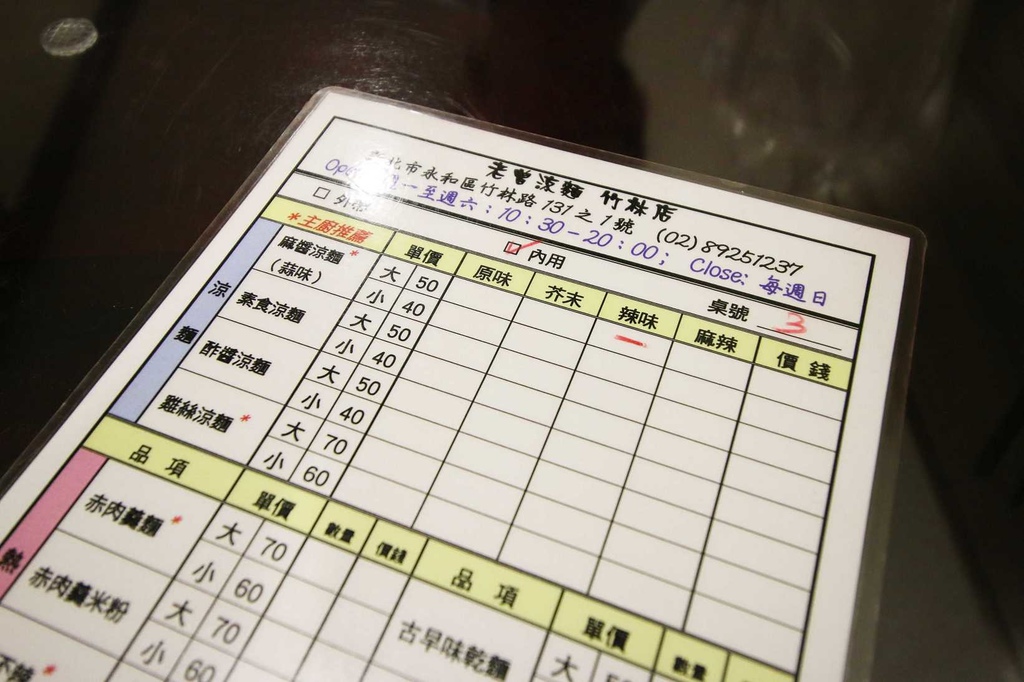 老曾涼麵 竹林店
北市永和區竹林路131之1號 (02)89251237
一至週六:10:30-20:00; Close: 每週日
□ 外帶 ☑ 內用 桌號 3
*主廚推薦 單價 原味 芥末 辣味 麻辣 價錢
涼麵
麻醬涼麵* 大 50
(蒜味) 小 40
素食涼麵 大 50
小 40
酢醬涼麵 大 50
小 40
雞絲涼麵* 大 70
小 60
品項 單價 數量 價錢 品項 單價 數量
熱
赤肉羹麵* 大 70
小 60
赤肉羹米粉 大 70
小 60
古早味乾麵 大
不辣*